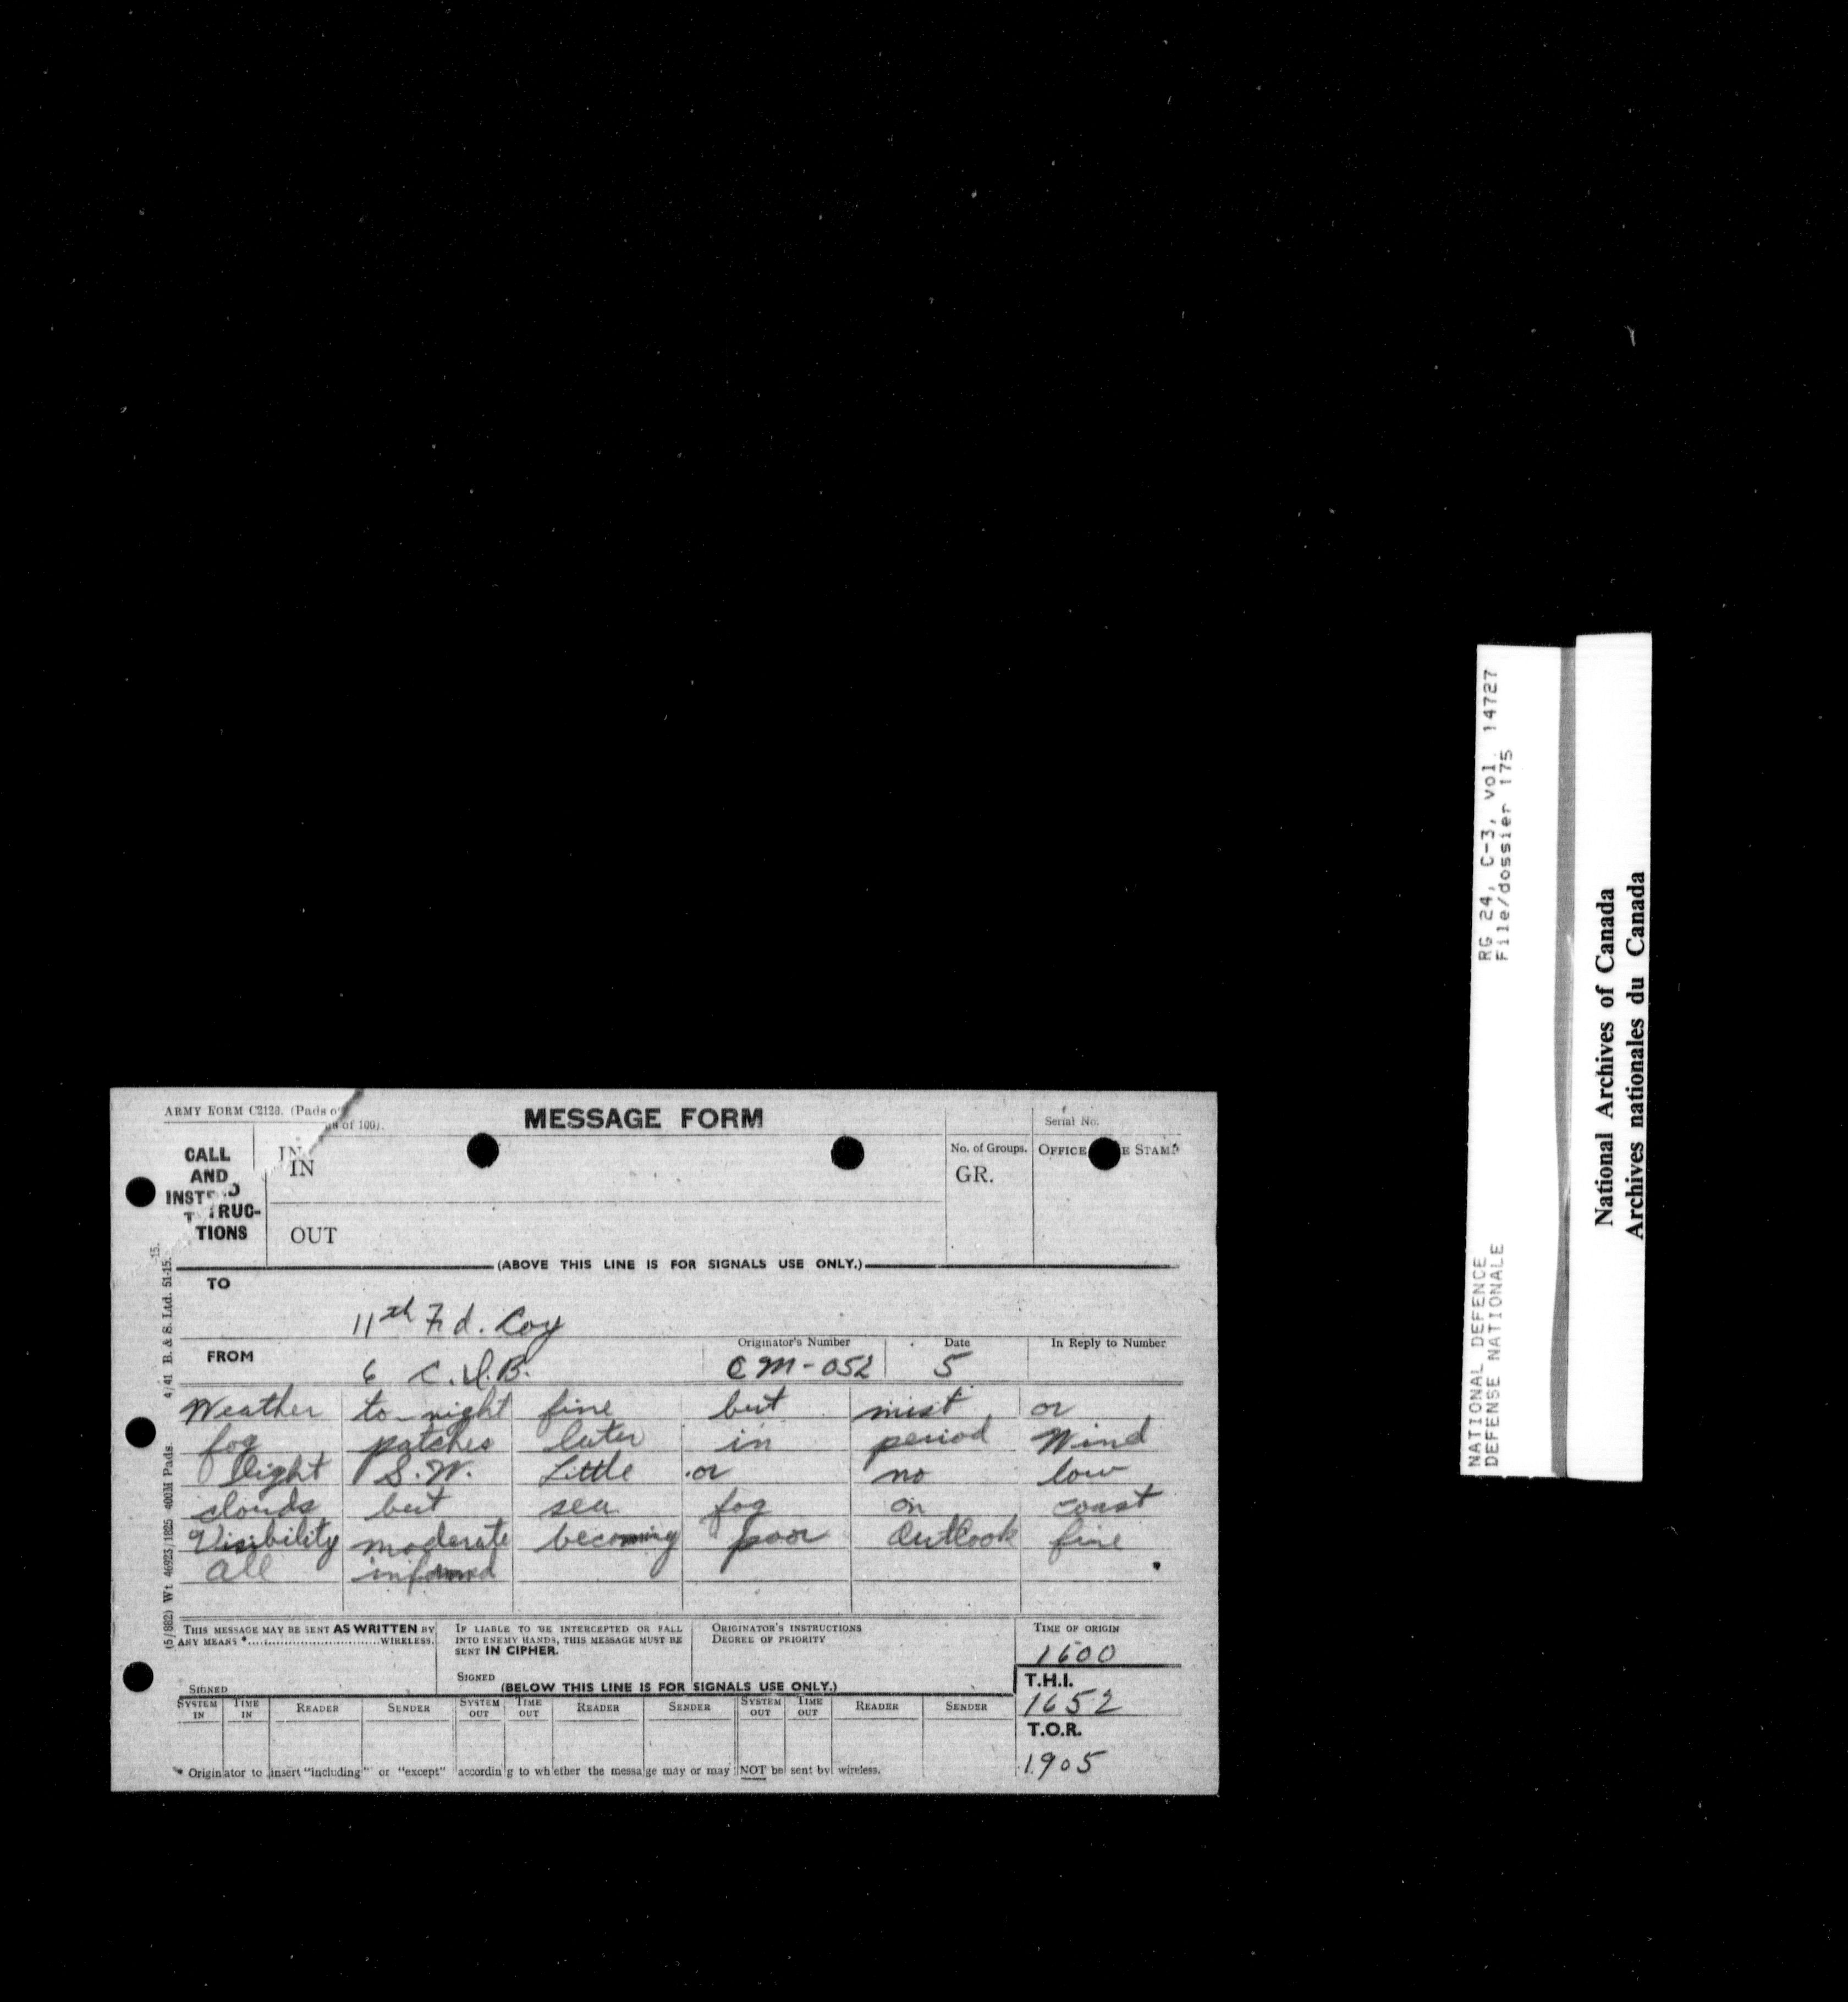 ARMY FORM C2128. (Pads of 100).
MESSAGE FORM
Serial No.
CALL AND INSTRUC-TIONS
IN
IN
OUT
No. of Groups.
GR.
OFFICE E STAMP
(ABOVE THIS LINE IS FOR SIGNALS USE ONLY.)
TO
11th Fd. Coy
FROM
6 C.I.B.
Originator's Number
CM-052
Date
5
In Reply to Number
Weather to-night fine but mist or
fog patches later in period Wind
light S.W. Little or no low
clouds but sea fog on coast
Visibility moderate becoming poor Outlook fine
All informed
THIS MESSAGE MAY BE SENT AS WRITTEN BY
ANY MEANS *..............................WIRELESS.
SIGNED
IF LIABLE TO BE INTERCEPTED OR FALL
INTO ENEMY HANDS, THIS MESSAGE MUST BE
SENT IN CIPHER.
SIGNED
ORIGINATOR'S INSTRUCTIONS
DEGREE OF PRIORITY
TIME OF ORIGIN
1600
T.H.I.
1652
T.O.R.
1905
(BELOW THIS LINE IS FOR SIGNALS USE ONLY.)
SYSTEM IN TIME IN READER SENDER SYSTEM OUT TIME OUT READER SENDER SYSTEM OUT TIME OUT READER SENDER
* Originator to insert "including" or "except" according to whether the message may or may NOT be sent by wireless.
(5/882) Wt 46923/1825 400M Pads. 4/41 B. & S. Ltd. 51-15.
15.
RG 24, C-3, vol. 14727
File/dossier 175
NATIONAL DEFENCE
DEFENSE NATIONALE
National Archives of Canada
Archives nationales du Canada